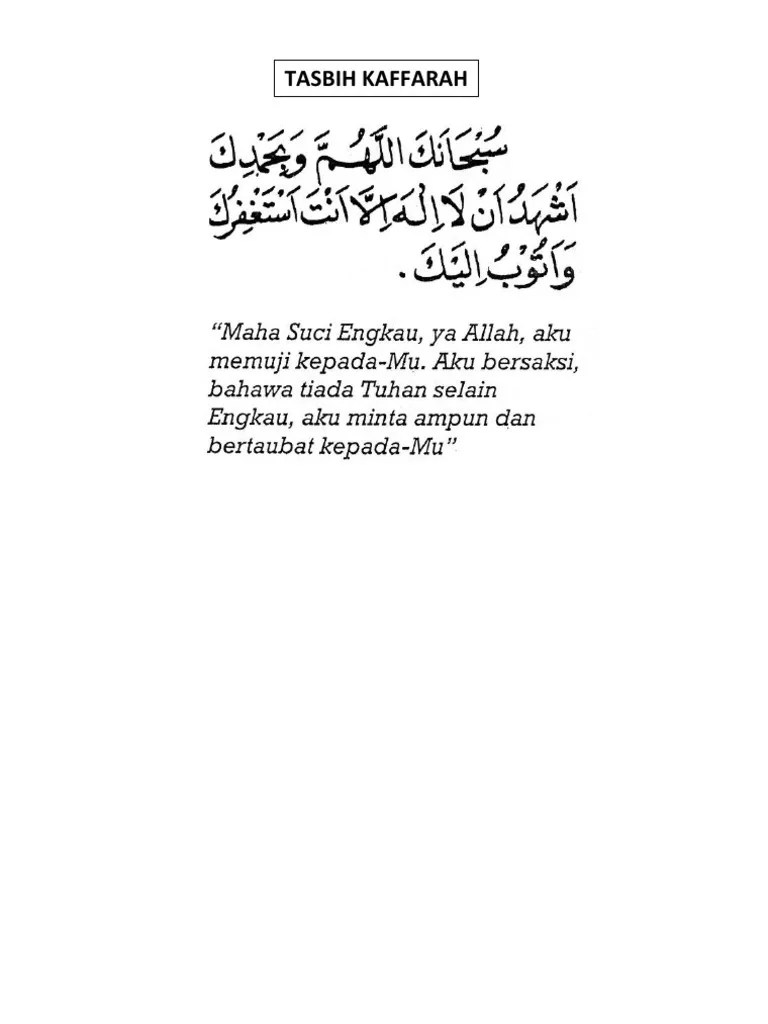 TASBIH KAFFARAH
سُبْحَانَكَ اللَّهُمَّ وَبِحَمْدِكَ
اَشْهَدُ اَنْ لَا اِلٰهَ اِلَّا اَنْتَ اَسْتَغْفِرُكَ
وَاَتُوْبُ اِلَيْكَ .
“Maha Suci Engkau, ya Allah, aku
memuji kepada-Mu. Aku bersaksi,
bahawa tiada Tuhan selain
Engkau, aku minta ampun dan
bertaubat kepada-Mu”